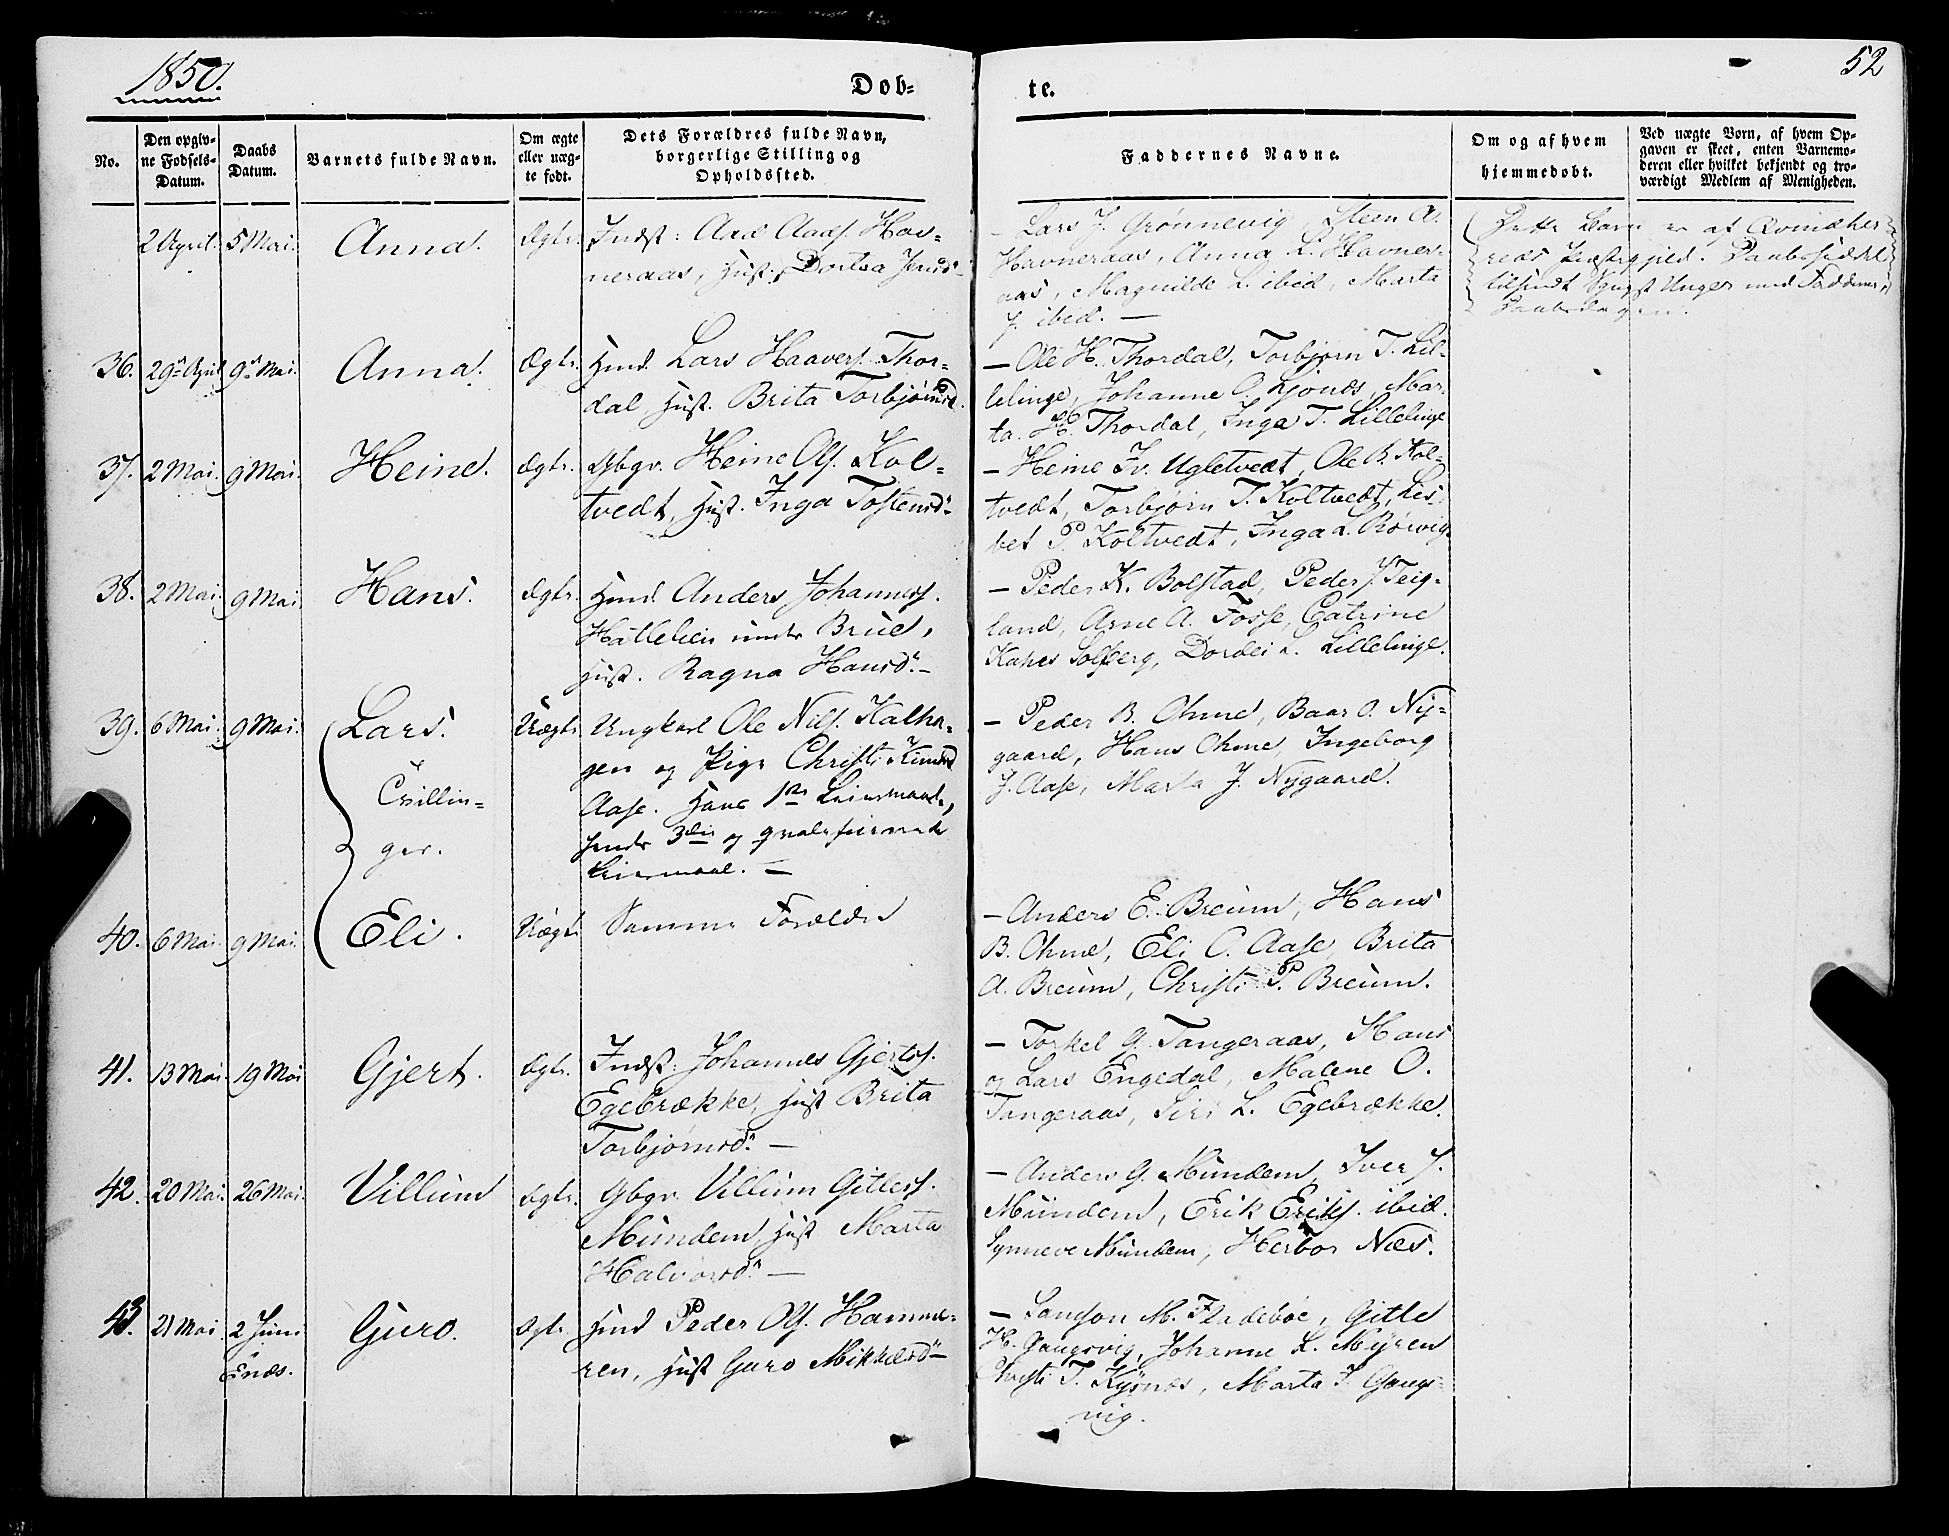 1850.
52
Dob-
te.
No.
Den opgiv-
ne Fodsels-
Datum.
Daabs
Datum.
Barnets fulde Navn.
Om ægte
eller uæg-
te fodt.
Dets Forældres fulde Navn,
borgerlige Stilling og
Opholdssted.
Faddernes Navne.
Om og af hvem
hjemmedobt.
Ved uægte Born, af hvem Op-
gaven er skeet, enten Barnemo-
deren eller hvilket bekjendt og tro-
værdigt Medlem af Menigheden.
2 April. 5 Mai. Anna. Ægte. Indst: Aad Aads. Hav-
neraas, Hust.
Lars J. Grønnevig Steen A.
Havneraas, Anna L. Havner-
aas, Magnilde L. ibid, Marta
J. ibid. —
Dette Barn er af Qvindher-
reds Præstegjeld. Daabsseddel
tilsendt
Daabsdagen.
36. 29de April 9de Mai. Anna. Ægte. Huusmd. Lars Haavers. Thor-
dal Hust. Brita Torbjørnsd.
— Ole H. Thordal, Torbjørn T. Lil-
lelinge, Johanne O. Ljonæs, Mar-
ta H. Thordal, Inga T. Lillelinge
37. 2 Mai. 9 Mai. Heine. Ægte. Gbgr. Heine Ols. Kol-
tvedt, Hust. Inga Tostensdr.
— Heine Iv. Ugletvedt, Ole B. Kol-
tvedt, Torbjørn T. Koltvedt, Lis-
bet P. Koltvedt, Inga L. Rørvig.
38. 2 Mai. 9 Mai. Hans. Ægte. Huusmd. Anders Johanness.
under Brue,
Hust. Ragna Hansdr. —
— Peder K. Bolstad, Peder J. Teig-
land, Arne A. Fosse, Catrine
Solberg, Dordei L. Lillelinge.
39. 6 Mai. 9 Mai. Lars. Uægte Ungkarl Ole Nils. Kalha-
gen og Pige Christi
Aase. Hans 1ste Leiermaal,
hendes 3die og qvalificerede
Leiermaal. —
Tvillin-
ger.
— Peder B. Ohme, Baar O. Ny-
gaard, Hans Ohme, Ingeborg
J. Aase, Marta J. Nygaard.
40. 6 Mai. 9 Mai. Eli. Uægte Samme Forældre
— Anders E. Breum, Hans
B. Ohme, Eli C. Aase, Brita
A. Breum, Christi P. Breum.
41. 13 Mai 19 Mai Gjert. Ægte. Indst: Johannes Gjerts.
Egebrække, Hust Brita
Torbjørnsdr. —
— Torkel G. Tangeraas, Hans
og Lars Engedal, Malene O.
Tangeraas, Siri L. Egebrække.
42. 20 Mai. 26 Mai. Villum Ægte. Gbgr. Villum Gitles.
Mundem, Hust Marta
Halvorsdr. —
— Anders G. Mundem, Iver J.
Mundem, Erik Eriks. ibid.
Synneve Mundem, Herbor Næs.
43. 21 Mai 2 Juni
Enæs.
Guro. Ægte. Huusmd Peder Ols. Hamma-
ren, Hust Guro Mikkelsdr —
— Samson M. Fladebøe, Gitle
H. Gangsvig, Johanne L. Myren
Christi T. Kysnæs, Marta I. Gangs-
vig.